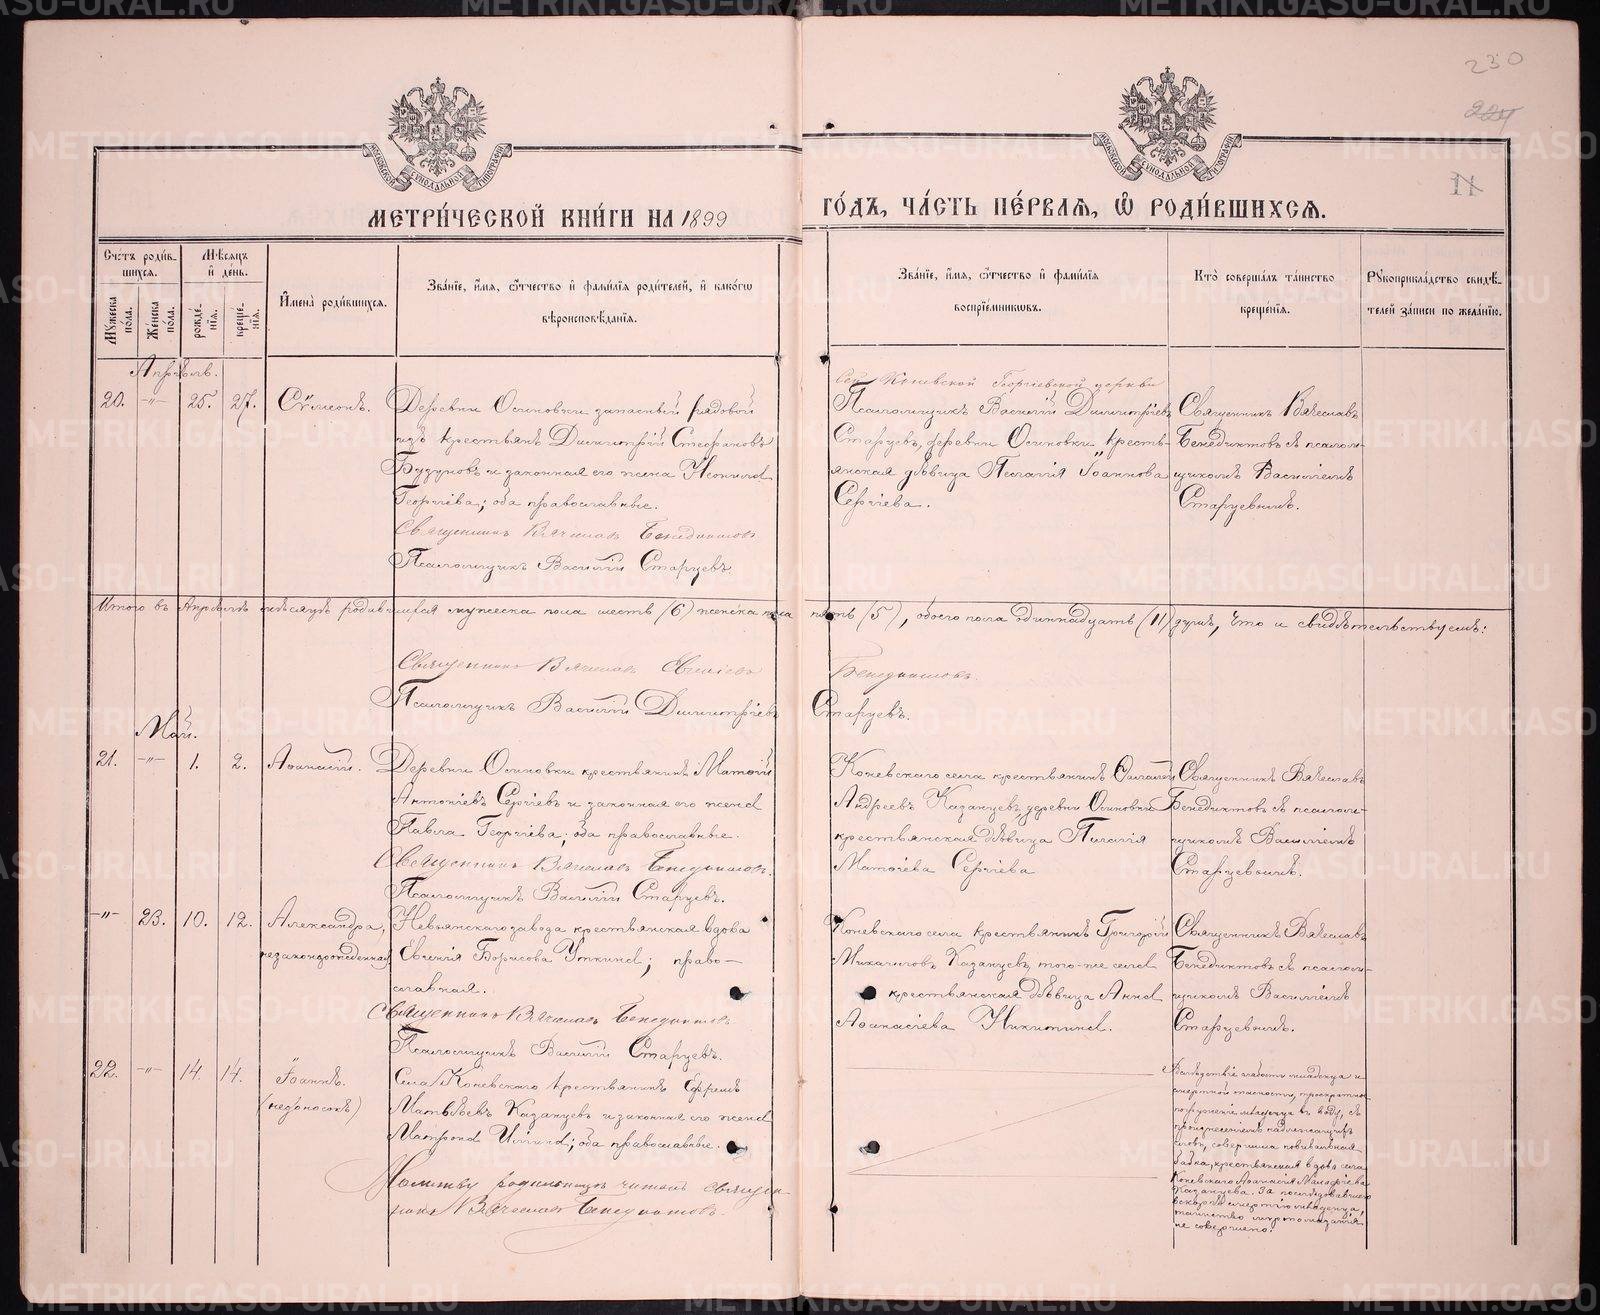 230
224
11
МОСКОВСКОЙ СѴНОДАЛЬНОЙ ТИПОГРАФІИ
МОСКОВСКОЙ СѴНОДАЛЬНОЙ ТИПОГРАФІИ
МЕТРИ́ЧЕСКОЙ КНИ́ГИ НА 1899
ГО́ДЪ, ЧА́СТЬ ПЕ́РВАѦ, Ѡ҆ РОДИ́ВШИХСѦ.
Сче́тъ роди́в-
шихсѧ.
Мѣ́сѧцъ
и҆ де́нь.
Му́жеска
по́ла.
Же́нска
по́ла.
рожде́-
нїѧ.
креще́-
нїѧ.
И҆мена̀ роди́вшихсѧ.
Зва́нїе, и҆́мѧ, ѻ҆́тчество и҆ фами́лїѧ роди́телей, и҆ како́гѡ
вѣроисповѣ́данїѧ.
Зва́нїе, и҆́мѧ, ѻ҆́тчество и҆ фами́лїѧ
воспрїе́мникѡвъ.
Кто̀ соверша́лъ та́инство
креще́нїѧ.
Рꙋкоприкла́дство свидѣ́-
телей за́писи по жела́нїю.
Апрѣль.
20. -„- 25. 27. Сѵмеонъ.
Деревни Осиновки запасный рядовой
изъ крестьянъ Димитрій Стефановъ
Бузуновъ и законная его жена Неонила
Георгіева; оба православные.
Священникъ Вячеславъ Бенедиктовъ
Псаломщикъ Василій Старцевъ.
Сей Коневской Георгіевской церкви
Псаломщикъ Василій Димитріевъ
Старцевъ, деревни Осиновки кресть-
янская дѣвица Пелагія Іоаннова
Сергіева.
Священникъ Вячеславъ
Бенедиктовъ съ псалом-
щикомъ Василіемъ
Старцевымъ.
Итого въ Апрѣлѣ мѣсяцѣ родившихся мужеска пола шесть (6) женска пола пять (5), обоего пола одиннадцать (11) душъ, что и свидѣтельствуемъ:
Священникъ Вячеславъ Бенедиктовъ
Псаломщикъ Василій Димитріевъ Старцевъ.
Май.
21. -„- 1. 2. Аѳанасій.
Деревни Осиновки крестьянинъ Матѳій
Антоніевъ Сергіевъ и законная его жена
Павла Георгіева; оба православные.
Священникъ Вячеславъ Бенедиктовъ.
Псаломщикъ Василій Старцевъ.
Коневскаго села крестьянинъ
Андреевъ Казанцевъ, деревни Осиновки
крестьянская дѣвица Пелагія
Матѳіева Сергіева
Священникъ Вячеславъ
Бенедиктовъ съ псалом-
щикомъ Василіемъ
Старцевымъ.
-„- 23. 10. 12. Александра,
незаконорожденная
Невьянскаго завода крестьянская вдова
Евгенія Борисова Уткина; право-
славная.
Священникъ Вячеславъ Бенедиктовъ
Псаломщикъ Василій Старцевъ.
Коневскаго села крестьянинъ Григорій
Михаиловъ Казанцевъ, того-же села
крестьянская дѣвица Анна
Аѳанасіева Никитина.
Священникъ Вячеславъ
Бенедиктовъ съ псалом-
щикомъ Василіемъ
Старцевымъ.
22. -„- 14. 14. Іоаннъ.
(недоносокъ)
Села Коневскаго крестьянинъ Ефремъ
Матвѣевъ Казанцевъ и законная его жена
Матрона Ильина; оба православные.
Молитву родильницѣ читалъ священ-
никъ Вячеславъ Бенедиктовъ.
Вслѣдствіе слабости младенца и
смертной опасности, троекратное
погруженіе младенца въ воду, съ
произнесеніемъ надлежащихъ
словъ, совершила повивальная
бабка, крестьянская вдова села
Коневскаго Анастасія
Казанцева. За послѣдовавшею
вскорѣ смертію младенца,
таинство мѵропомазанія
не совершено.
METRIKI.GASO-URAL.RU